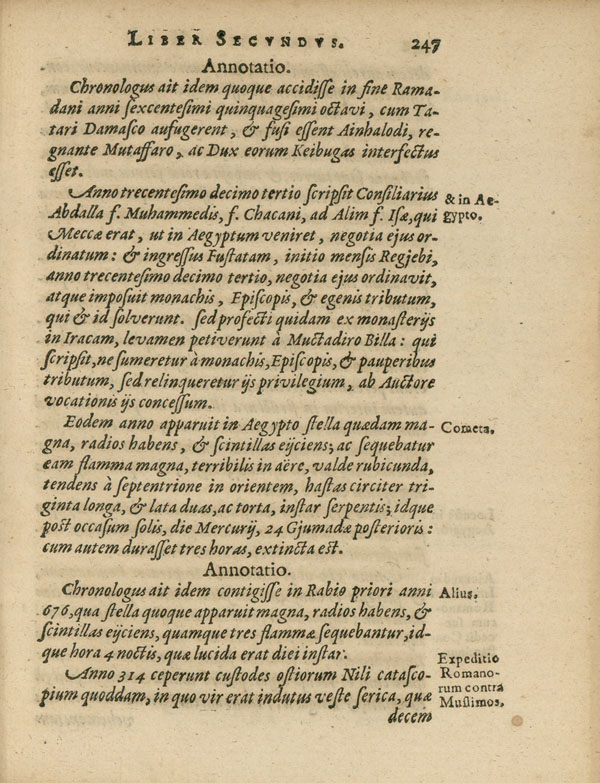 LIBER SECVNDVS. 247
Annotatio.
Chronologus ait idem quoque accidisse in fine Rama-
dani anni sexcentesimi quinquagesimi octavi, cum Ta-
tari Damasco aufugerent, & fusi essent Ainhalodi, re-
gnante Mutaffaro, ac Dux eorum Keibugas interfectus
esset.
Anno trecentesimo decimo tertio scripsit Consiliarius
& in Ae-
Abdalla f. Muhammedis, f. Chacani, ad Alim f. Isæ, qui
gypto.
Meccæ erat, ut in Aegyptum veniret, negotia ejus or-
dinatum: & ingressus Fustatam, initio mensis Regjebi,
anno trecentesimo decimo tertio, negotia ejus ordinavit,
atque imposuit monachis, Episcopis, & egenis tributum,
qui & id solverunt. sed profecti quidam ex monasterijs
in Iracam, levamen petiverunt à Muctadiro Billa: qui
scripsit, ne sumeretur à monachis, Episcopis, & pauperibus
tributum, sed relinqueretur ijs privilegium, ab Auctore
vocationis ijs concessum.
Eodem anno apparuit in Aegypto stella quædam ma-
Cometa.
gna, radios habens, & scintillas ejiciens; ac sequebatur
eam flamma magna, terribilis in aëre, valde rubicunda,
tendens à septentrione in orientem, hastas circiter tri-
ginta longa, & lata duas, ac torta, instar serpentis; idque
post occasum solis, die Mercurij, 24 Gjumadæ posterioris:
cum autem durasset tres horas, extincta est.
Annotatio.
Chronologus ait idem contigisse in Rabio priori anni
Alius.
676, qua stella quoque apparuit magna, radios habens, &
scintillas ejiciens, quamque tres flammæ sequebantur, id-
que hora 4 noctis, quæ lucida erat diei instar.
Expeditio
Romano-
rum contra
Muslimos.
Anno 314 ceperunt custodes ostiorum Nili catasco-
pium quoddam, in quo vir erat indutus veste serica, quæ
decem